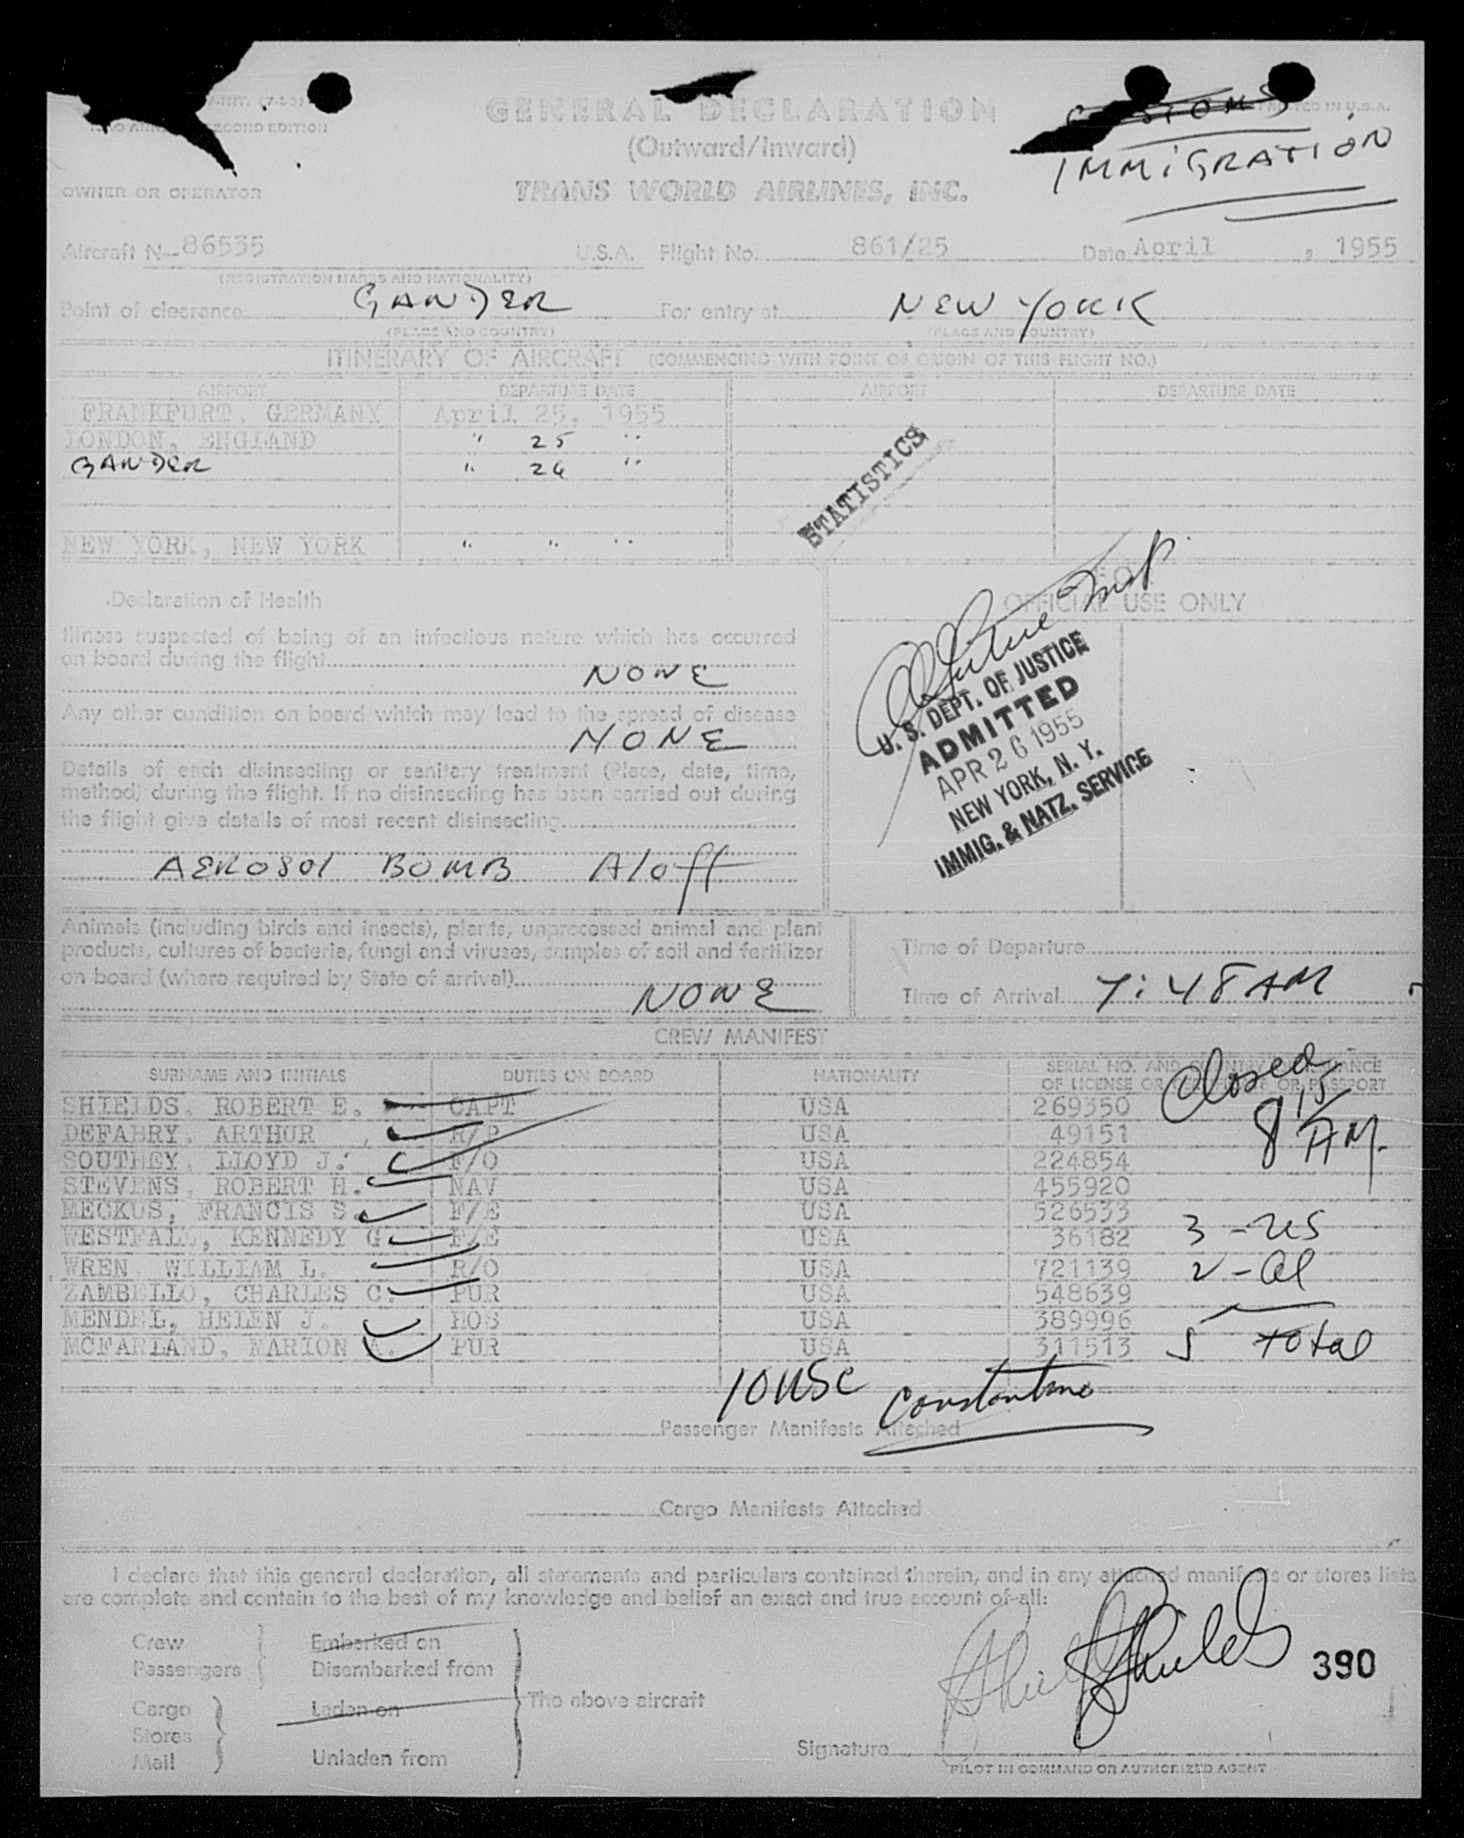 SECOND EDITION
GENERAL DECLARATION
(Outward/Inward)
CUSTOMS
PRINTED IN U.S.A.
IMMIGRATION
OWNER OR OPERATOR
TRANS WORLD AIRLINES, INC.
Aircraft N-86535 U.S.A. Flight No. 861/25 Date April , 1955
(REGISTRATION MARKS AND NATIONALITY)
Point of clearance GANDER For entry at NEW YORK
(PLACE AND COUNTRY) (PLACE AND COUNTRY)
ITINERARY OF AIRCRAFT (COMMENCING WITH POINT OF ORIGIN OF THIS FLIGHT NO.)
AIRPORT DEPARTURE DATE AIRPORT DEPARTURE DATE
FRANKFURT, GERMANY April 25, 1955
LONDON, ENGLAND " 25 "
GANDER " 26 "
STATISTICS
NEW YORK, NEW YORK " " "
Declaration of Health
FOR
OFFICIAL USE ONLY
Illness suspected of being of an infectious nature which has occurred
on board during the flight
NONE
Any other condition on board which may lead to the spread of disease
NONE
Details of each disinsecting or sanitary treatment (Place, date, time,
method) during the flight. If no disinsecting has been carried out during
the flight give details of most recent disinsecting
AEROSOL BOMB Aloft
Insp.
U. S. DEPT. OF JUSTICE
ADMITTED
APR 26 1955
NEW YORK, N. Y.
IMMIG. & NATZ. SERVICE
Animals (including birds and insects), plants, unprocessed animal and plant
products, cultures of bacteria, fungi and viruses, samples of soil and fertilizer
on board (where required by State of arrival)
NONE
Time of Departure
Time of Arrival 7:48 AM
CREW MANIFEST
SURNAME AND INITIALS DUTIES ON BOARD NATIONALITY SERIAL NO. AND COUNTRY OF ISSUANCE
OF LICENSE OR CERTIFICATE OR PASSPORT
SHIELDS, ROBERT E. CAPT USA 269350
DEFABRY, ARTHUR , R/P USA 49151
SOUTHEY, LLOYD J. F/O USA 224854
STEVENS, ROBERT H. NAV USA 455920
MECKUS, FRANCIS S. F/E USA 526533
WESTFALL, KENNEDY G. F/E USA 36182
WREN, WILLIAM L. R/O USA 721139
ZAMBELLO, CHARLES C. PUR USA 548639
MENDEL, HELEN J. HOS USA 389996
MCFARLAND, MARION A. PUR USA 311513
Closed
8 15
AM.
3 - US
2 - al
5 total
10 USC Constantine
Passenger Manifests Attached
Cargo Manifests Attached
I declare that this general declaration, all statements and particulars contained therein, and in any attached manifests or stores lists
are complete and contain to the best of my knowledge and belief an exact and true account of all:
Crew Embarked on
Passengers Disembarked from
Cargo Laden on The above aircraft
Stores
Mail Unladen from
Shields
390
Signature
PILOT IN COMMAND OR AUTHORIZED AGENT